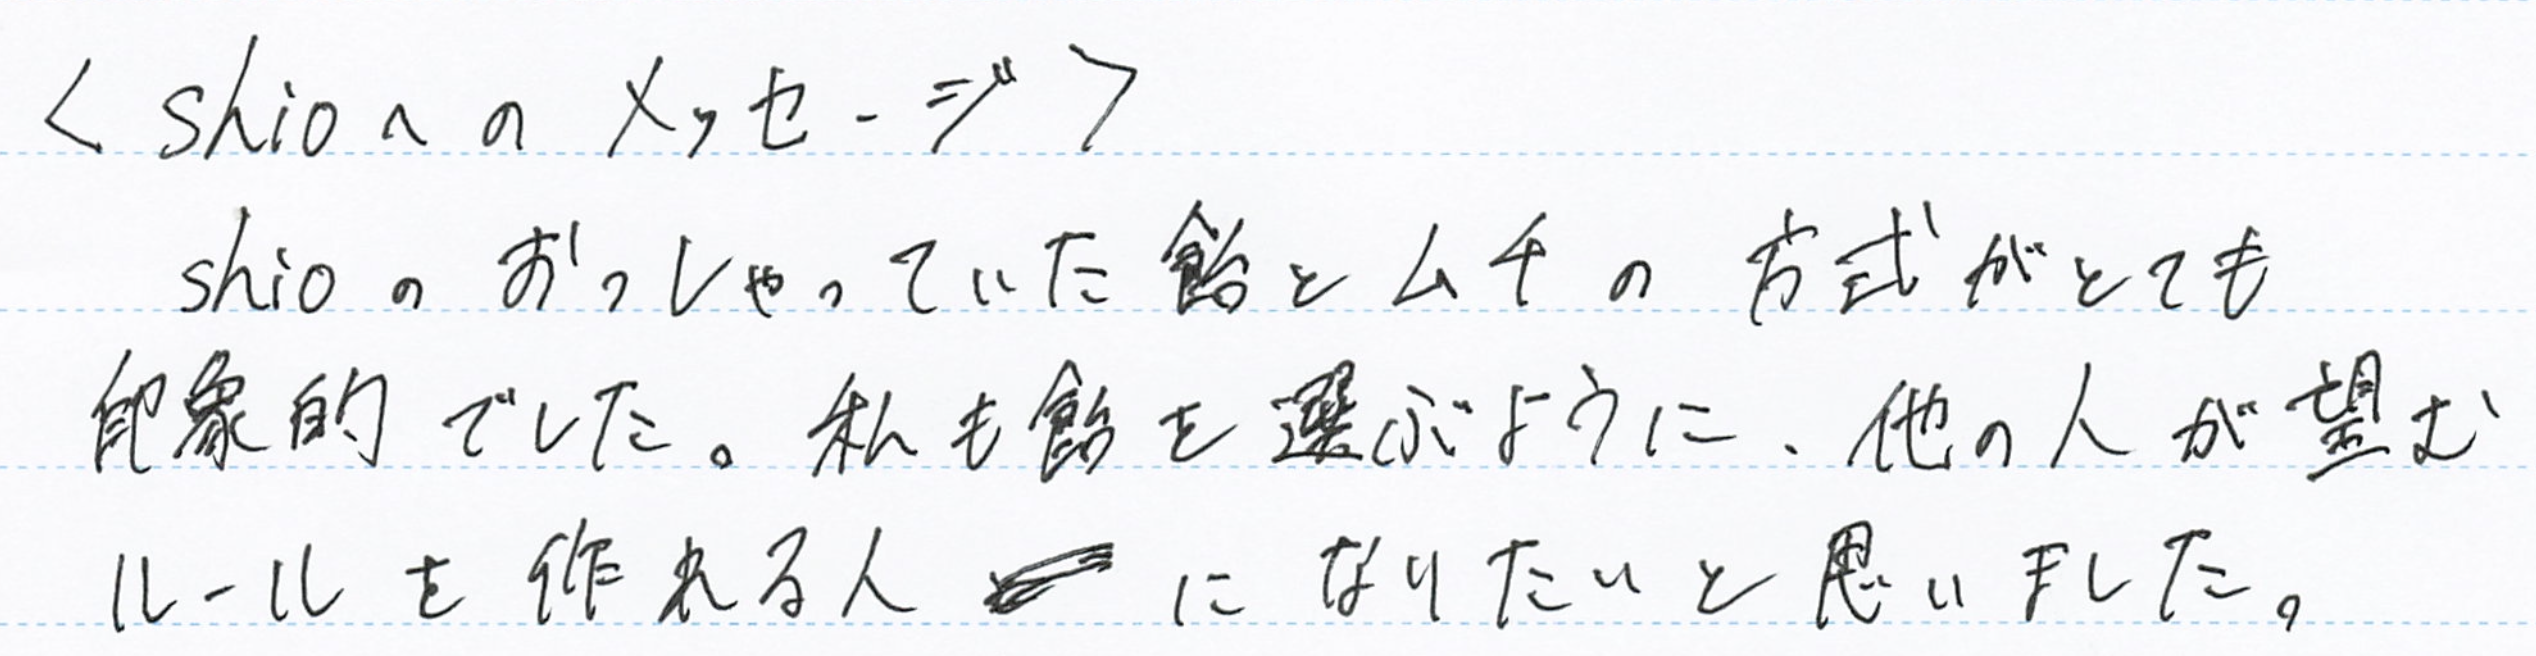 <shioへのメッセージ>
shioのおっしゃっていた飴とムチの方式がとても
印象的でした。私も飴を選ぶように、他の人が望む
ルールを作れる人になりたいと思いました。